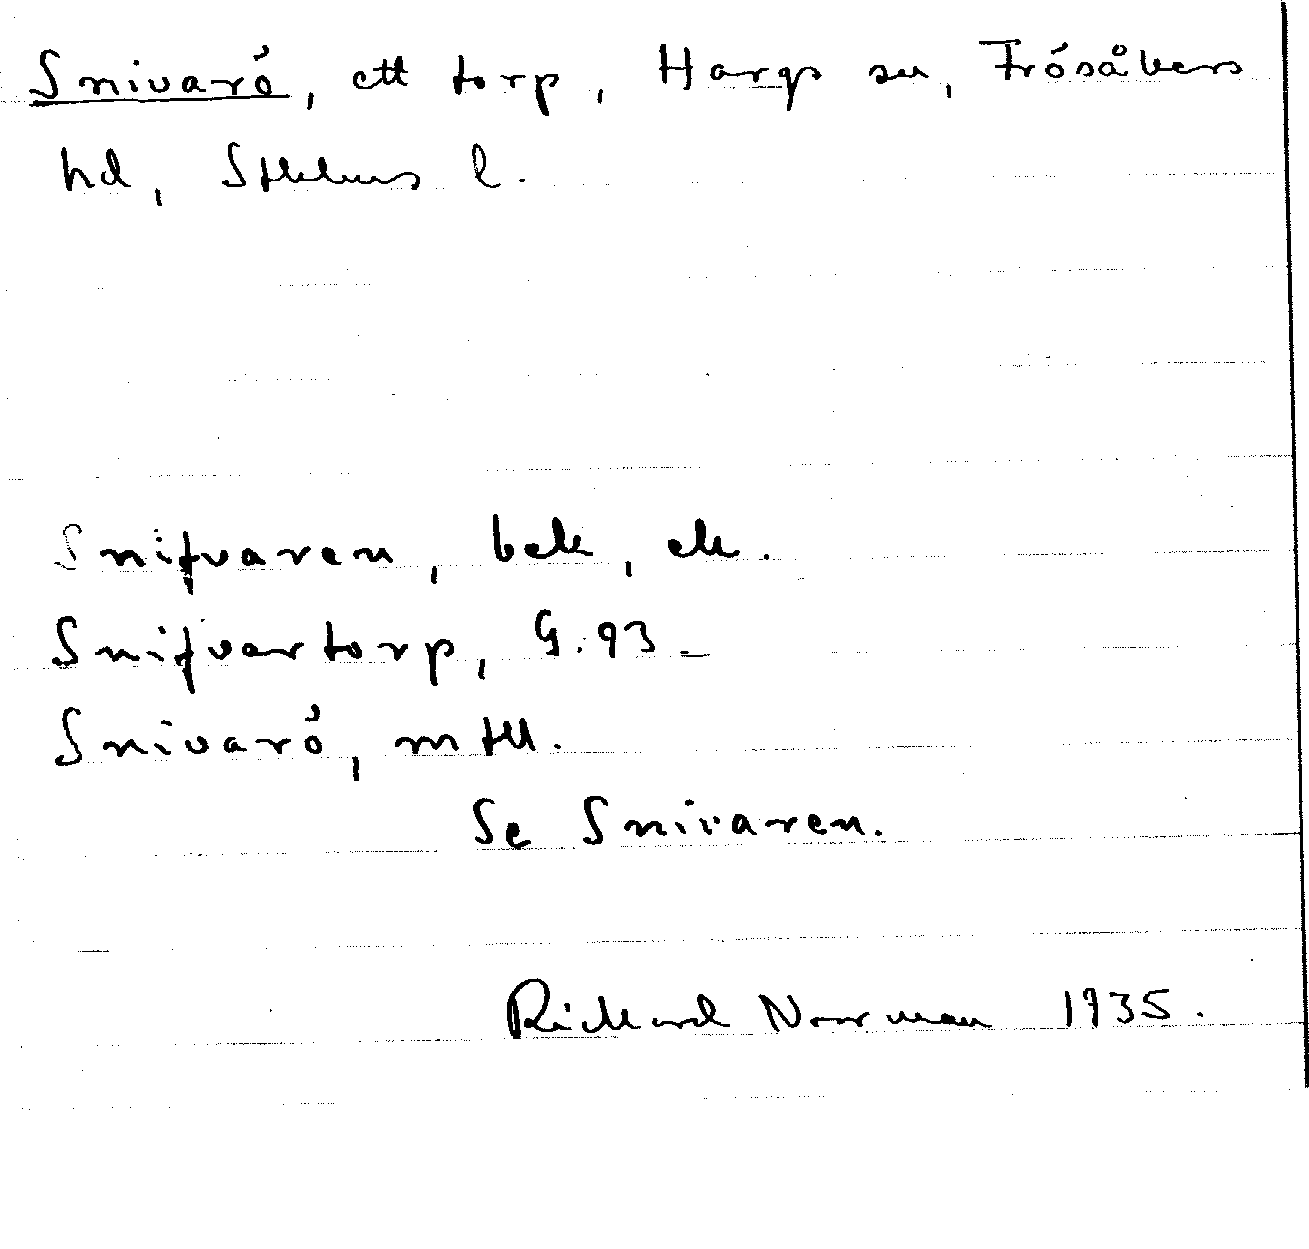 Snivarö, ett torp, Hargs sn, Frösåkers
hd, Sthlms l.
Snifvaren, bek, ek.
Snifvartorp, G. 93 -
Snivarö, mtll.
Se Snivaren.
Rickard Norrman 1935.